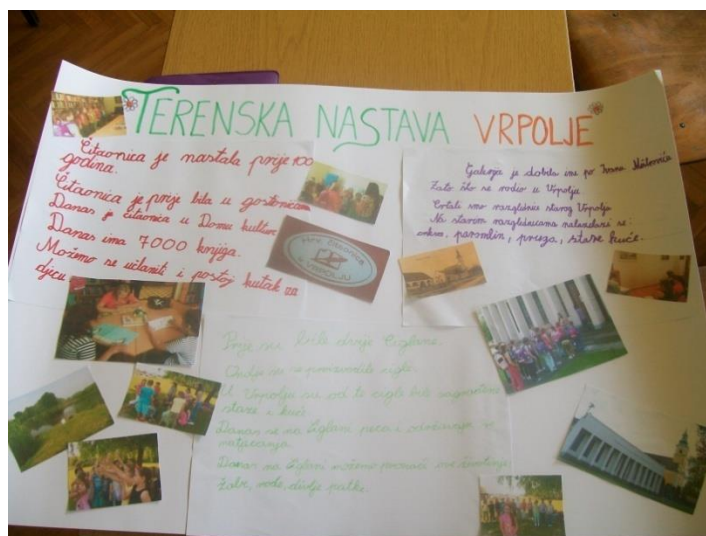 TERENSKA NASTAVA VRPOLJE
Čitaonica je nastala prije 100
godina.
Čitaonica je prije bila u gostionicam
Danas je čitaonica u Domu kulture
Danas ima 7000 knjiga.
Možemo se učlaniti i postoji kutak za
djecu
Galerija je dobila ime po Ivanu Meštroviću
Zato što se rodio u Vrpolju
Crtali smo razglednicu starog Vrpolja
Na starim razglednicama nalazi se:
paromlin, pruga, stare kuće.
ČITAONICA
U VRPOLJU
Prije su bile dvije Ciglane.
Ovdje su se proizvodile cigle.
U Vrpolju su od te cigle bile napravljene
stare kuće.
Danas se na Ciglani peca i održavaju se
natjecanja.
Danas na Ciglani možemo pronaći ove životinje
žabe, vode, divlje patke.